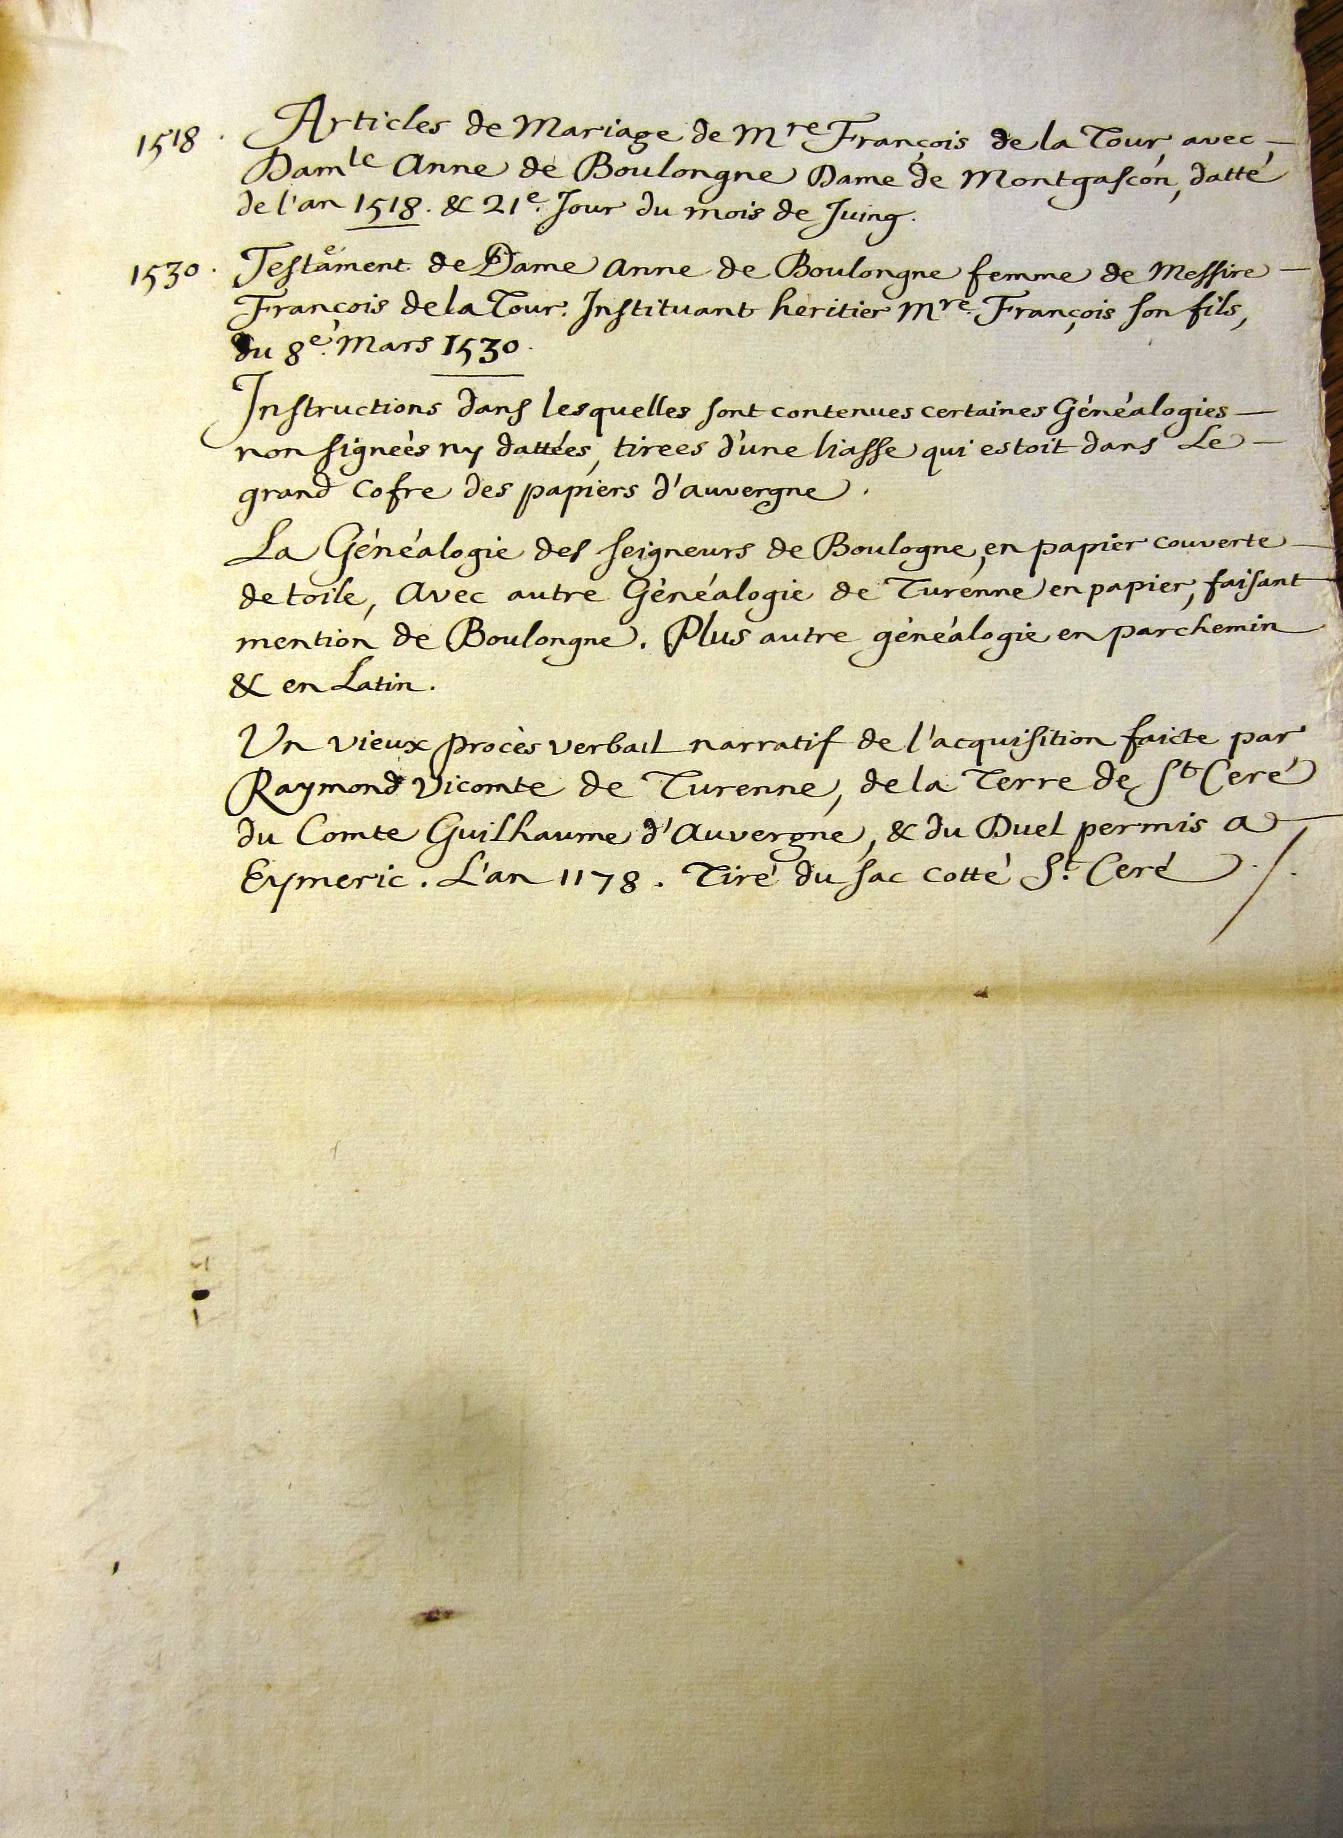 1518. Articles de Mariage de Mre François de la Tour avec
Damle Anne de Boulongne Dame de Montgascon, datté
de l'an 1518. & 21e. Jour du mois de Juing.
1530. Testament de Dame Anne de Boulongne femme de Messire
François de la Tour. Instituant heritier Mre. François son fils,
du 8e. Mars 1530.
Instructions dans lesquelles sont contenues certaines Généalogies
non signeés ny dattées, tirees d'une liasse qui estoit dans Le
grand Cofre des papiers d'auvergne.
La Généalogie des seigneurs de Boulogne, en papier couverte
de toile, Avec autre Généalogie de Turenne en papier, faisant
mention de Boulongne. Plus autre généalogie en parchemin
& en Latin.
Un vieux procès verbail narratif de l'acquisition faicte par
Raymond Vicomte de Turenne, de la Terre de St Ceré
du Comte Guilhaume d'Auvergne, & du Duel permis a
Eymeric. L'an 1178. Tiré du sac cotté St. Ceré